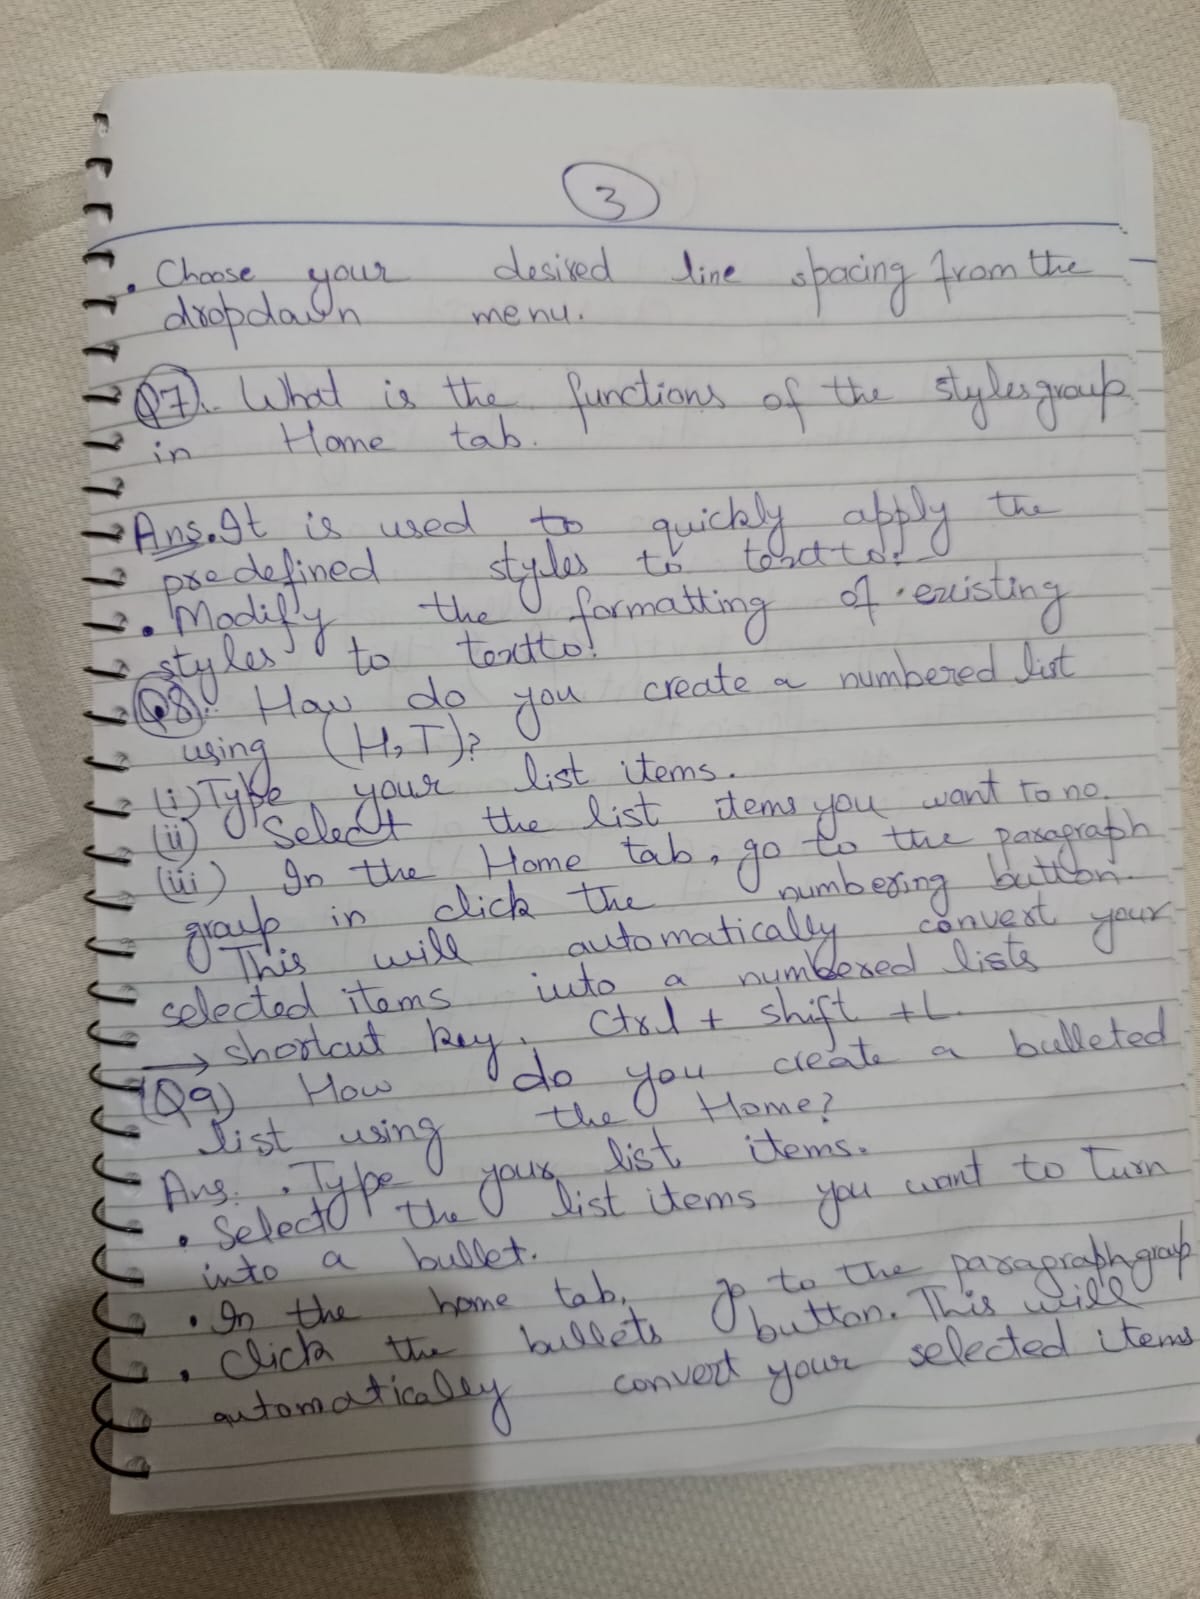 3
. Choose your desired line spacing from the
dropdown menu.
Q7). What is the functions of the stylesgroup
in Home tab.
Ans. It is used to quickly apply the
predefined styles to textto:
. Modify the formatting of existing
styles to textto!
Q8). How do you create a numbered list
using (H,T)?
(i) Type your list items.
(ii) Select the list items you want to no.
(iii) In the Home tab, go to the paragraph
group in click the numbering button.
This will automatically convert your
selected items into a numbered lists
→ shortcut key. Ctrl + shift + L.
(Q9) How do you create a bulleted
list using the Home?
Ans. . Type your list items.
. Select the list items you want to turn
into a bullet.
. In the home tab, go to the paragraph group
. Click the bullets button. This will
automatically convert your selected items